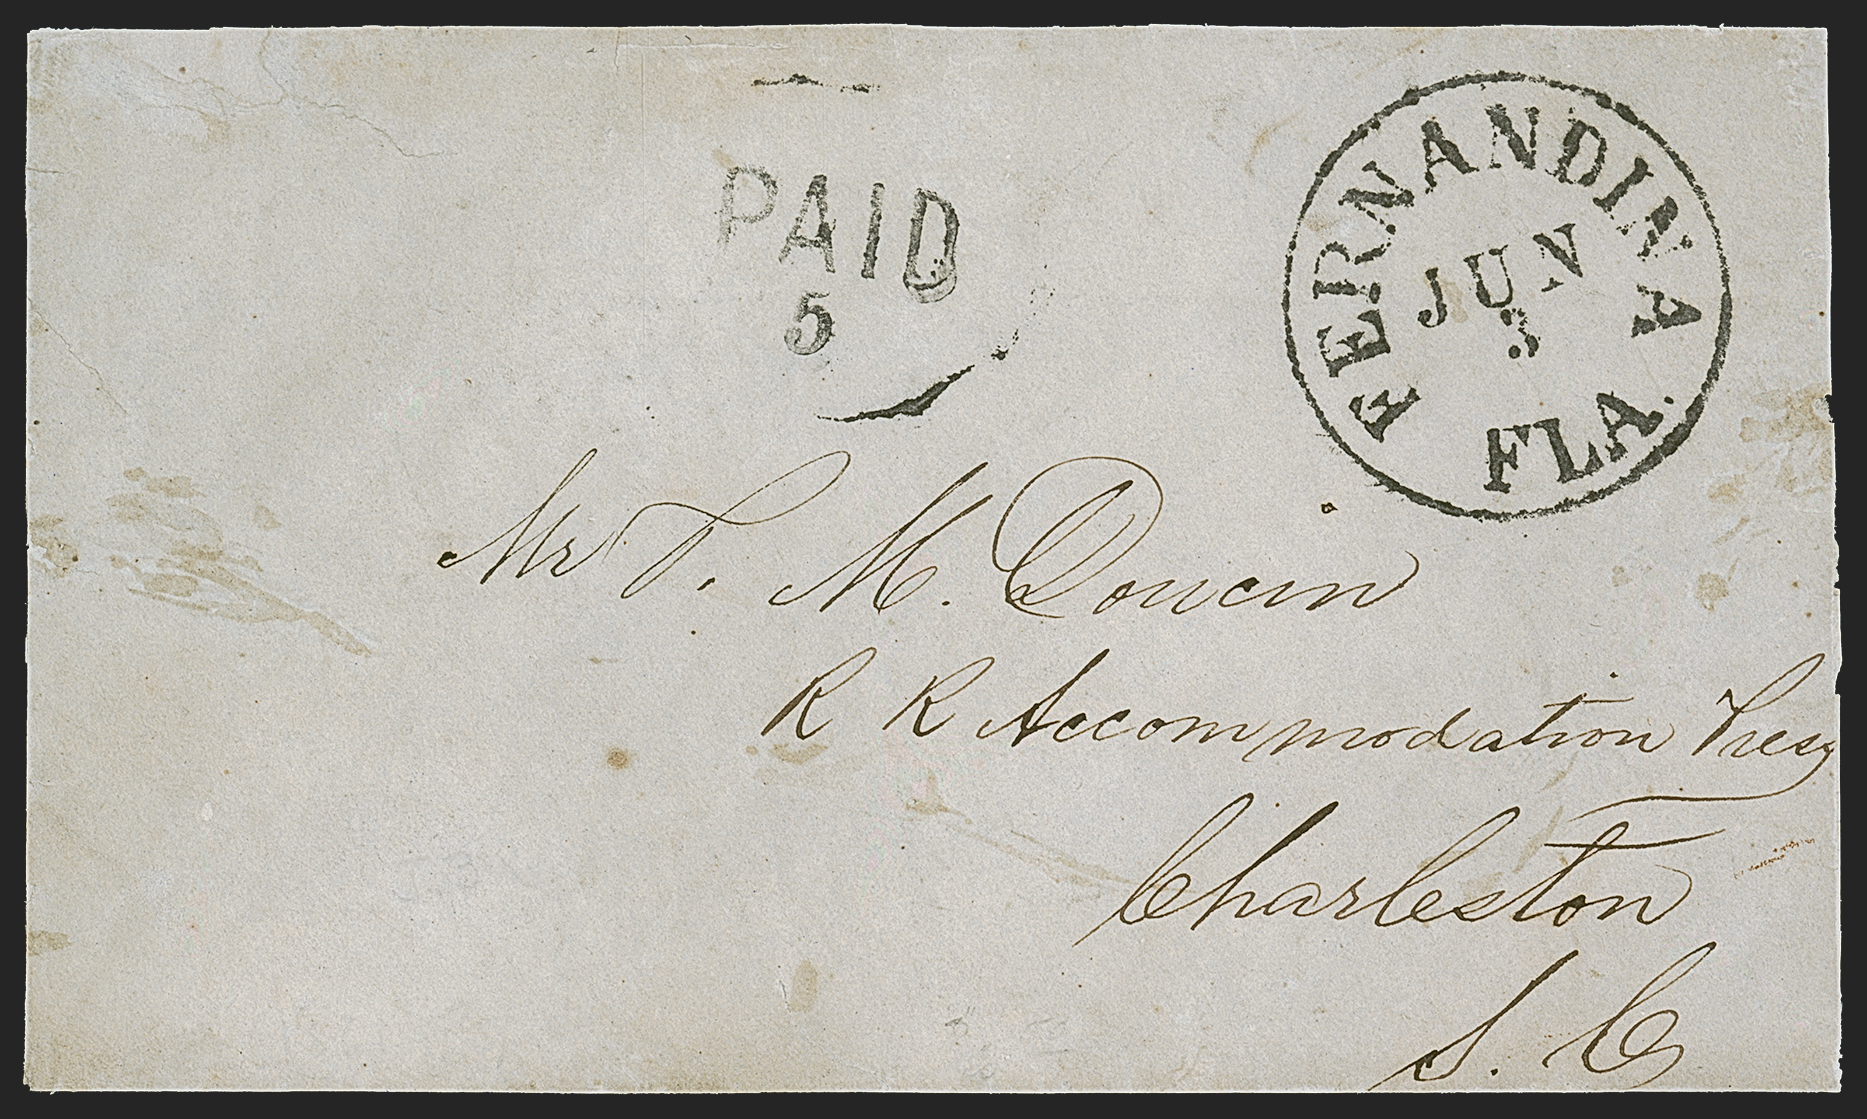 PAID
5
FERNANDINA
JUN
3
FLA.
Mr T. M. Doucin
R R Accommodation
Charleston
S. C